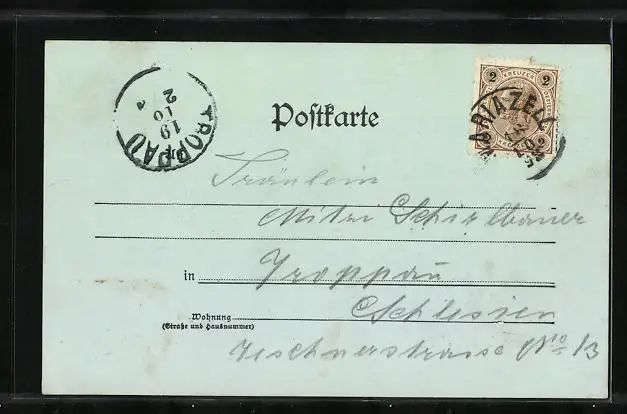 2 KREUZER 2
MARIAZELL
TROPPAU
19
10
2
Postkarte
Fräulein
Mitzi Schirlbauer
in Troppau
Schlesien
Wohnung
(Straße und Hausnummer)
Teschnerstrasse No 13